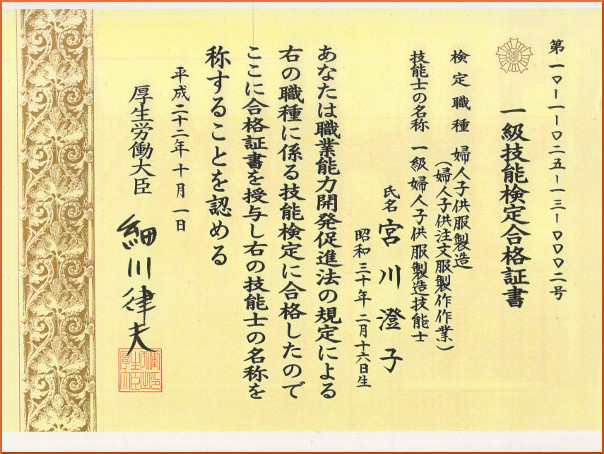 第一〇-一-〇二五-一三-〇〇〇二号
一級技能検定合格証書
検定職種 婦人子供服製造
(婦人子供注文服製作作業)
技能士の名称 一級婦人子供服製造技能士
氏名 宮川澄子
昭和三十年二月十六日生
あなたは職業能力開発促進法の規定による
右の職種に係る技能検定に合格したので
ここに合格証書を授与し右の技能士の名称を
称することを認める
平成二十二年十月一日
厚生労働大臣
細川律夫